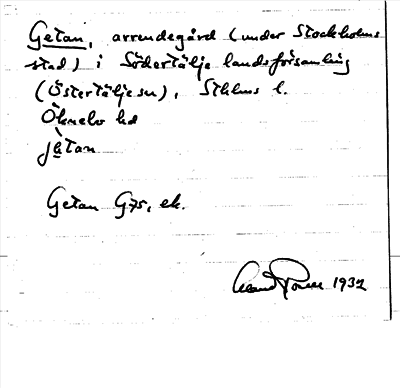 Getan, arrendegård (under Stockholms
stad) i Södertälje landsförsamling
(Östertälje sn), Sthlms l.
Öknebo hd
jètan
Getan G75, ek.
1932